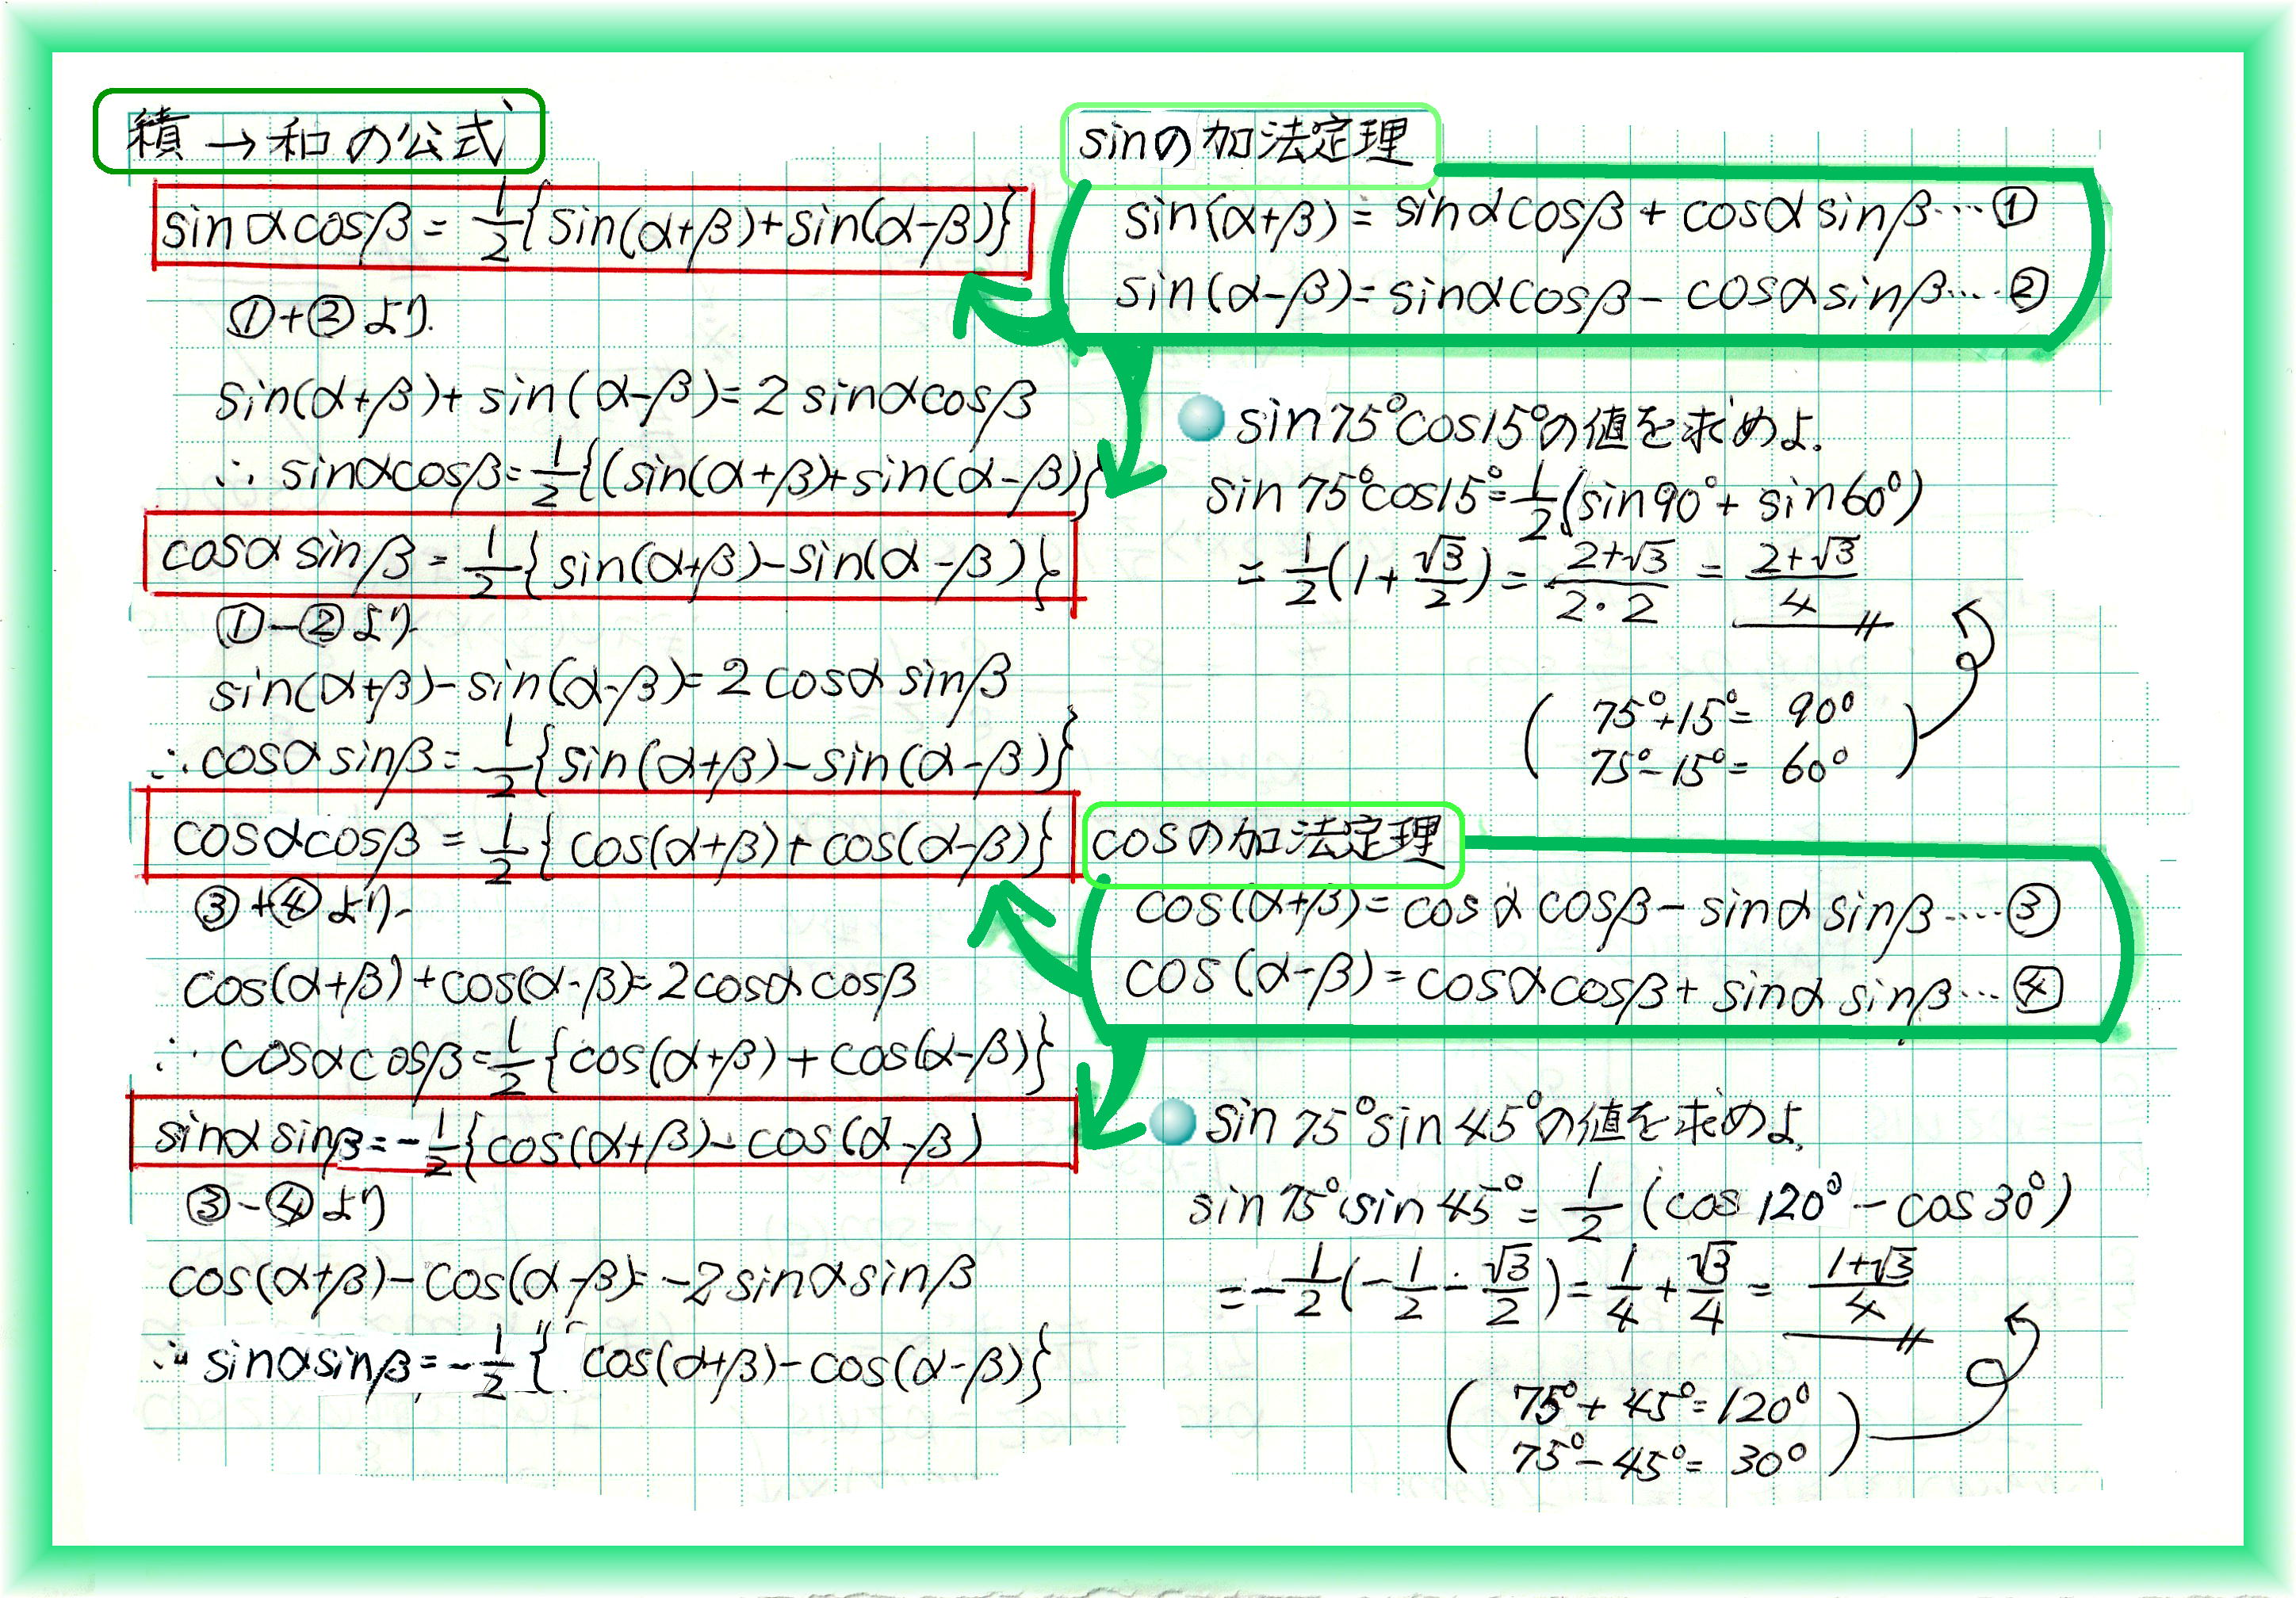 積→和の公式
sinαcosβ = 1/2{sin(α+β)+sin(α-β)}
①+②より.
sin(α+β)+sin(α-β)=2sinαcosβ
∴ sinαcosβ=1/2{(sin(α+β)+sin(α-β)}
cosαsinβ = 1/2{sin(α+β)-sin(α-β)}
①-②より
sin(α+β)-sin(α-β)=2cosαsinβ
∴cosαsinβ=1/2{sin(α+β)-sin(α-β)}
cosαcosβ = 1/2{cos(α+β)+cos(α-β)}
③+④より
cos(α+β)+cos(α-β)=2cosαcosβ
∴ cosαcosβ=1/2{cos(α+β)+cos(α-β)}
sinαsinβ=-1/2{cos(α+β)-cos(α-β)
③-④より
cos(α+β)-cos(α-β)=-2sinαsinβ
∴ sinαsinβ=-1/2{cos(α+β)-cos(α-β)}
sinの加法定理
sin(α+β)=sinαcosβ+cosαsinβ…①
sin(α-β)=sinαcosβ-cosαsinβ…②
sin75°cos15°の値を求めよ.
sin75°cos15°=1/2(sin90°+sin60°)
=1/2(1+√3/2)=2+√3/2・2=2+√3/4
75°+15°=90°
75°-15°=60°
cosの加法定理
cos(α+β)=cosαcosβ-sinαsinβ…③
cos(α-β)=cosαcosβ+sinαsinβ…④
sin75°sin45°の値を求めよ.
sin75°sin45°=1/2(cos120°-cos30°)
=-1/2(-1/2-√3/2)=1/4+√3/4=1+√3/4
75°+45°=120°
75°-45°=30°